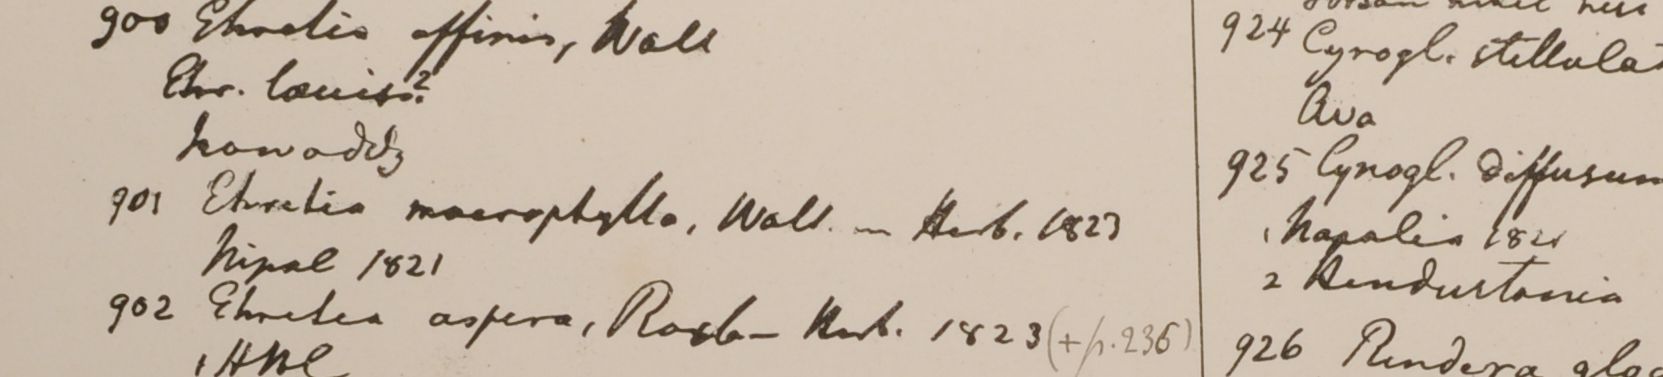 900 Ehretia affinis, Wall
Ehr. laevis?
Irawaddy
901 Ehretia macrophylla, Wall. — Herb. 1823
Nipal 1821
902 Ehretia aspera, Roxb — Herb. 1823 (+p. 236)
1 HBC
924 Cynogl. stellulat
Ava
925 Cynogl. diffusum
1 Napalia 1821
2 Hindustania
926 Rindera glo